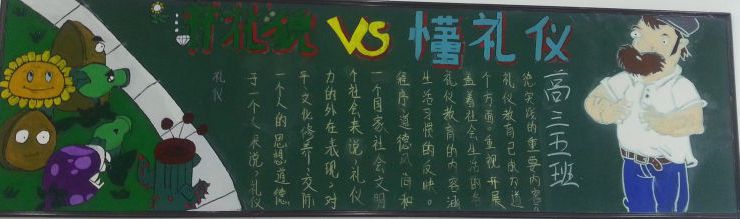 礼 VS 懂礼仪
礼仪
于一个人来说,礼仪
一个人的思想道德
平文化修养、交际
力的外在表现,对
个社会来说,礼仪
一个国家社会文明
程序、道德风尚和
生活习惯的反映。
礼仪教育的内容涵
盖着社会生活的各
个方面。重视开展
礼仪教育已成为道
德实践的重要内容。
高三五班